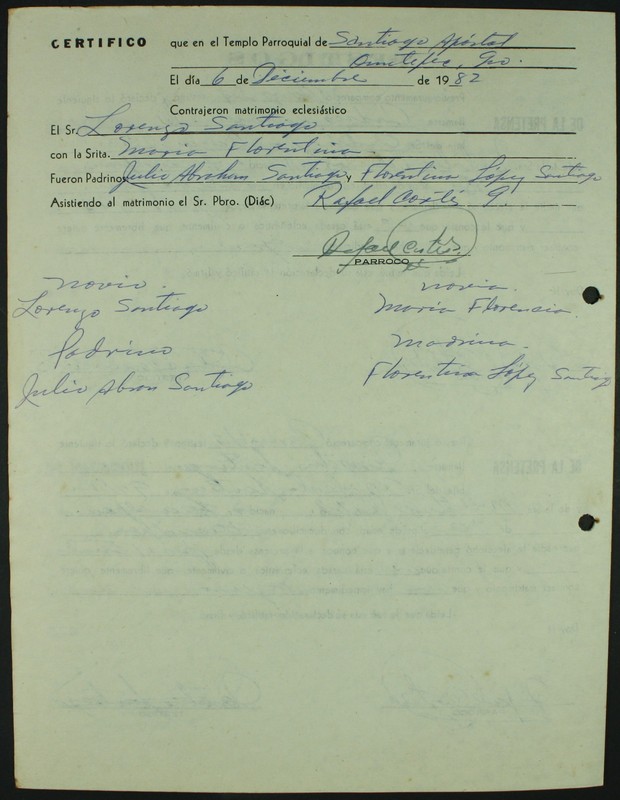 CERTIFICO que en el Templo Parroquial de Santiago Apóstal
Ometepec, Gro.
El día 6 de Diciembre de 1982
Contrajeron matrimonio eclesiástico
El Sr. Lorenzo Santiago
con la Srita. Maria Florentina.
Fueron Padrinos Julio Abraham Santiago, y Florentina López Santiago
Asistiendo al matrimonio el Sr. Pbro. (Diác) Rafael Cortés G.
Rafael Cortés
PARROCO
novio. novia.
Lorenzo Santiago María Florencia.
Padrino Madrina.
Julio Abran Santiago Florentina López Santiago